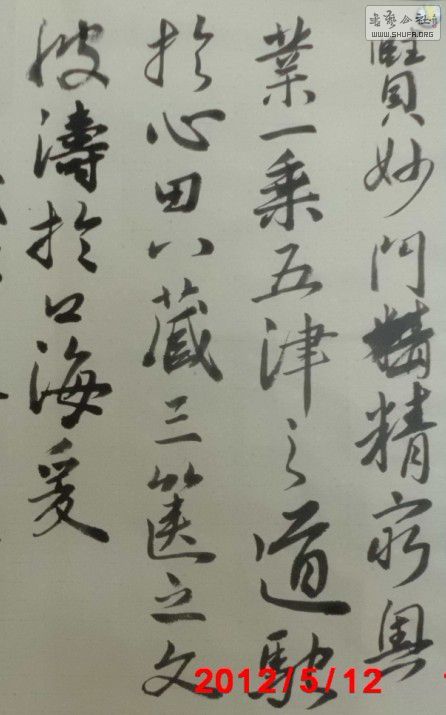 書藝公社
WWW.SHUFA.ORG
賾妙門精窮奧
業一乘五津之道馳
於心田八藏三篋之文
波濤於口海爰
2012/5/12